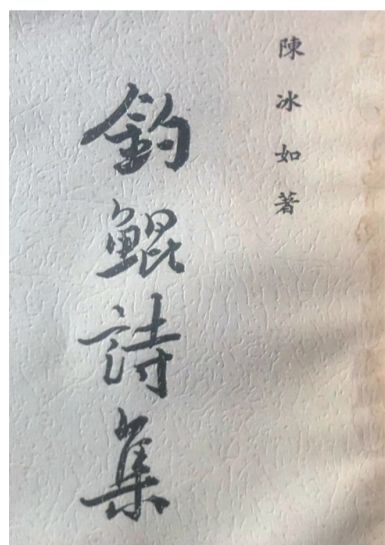 陳冰如著
釣鯤詩集